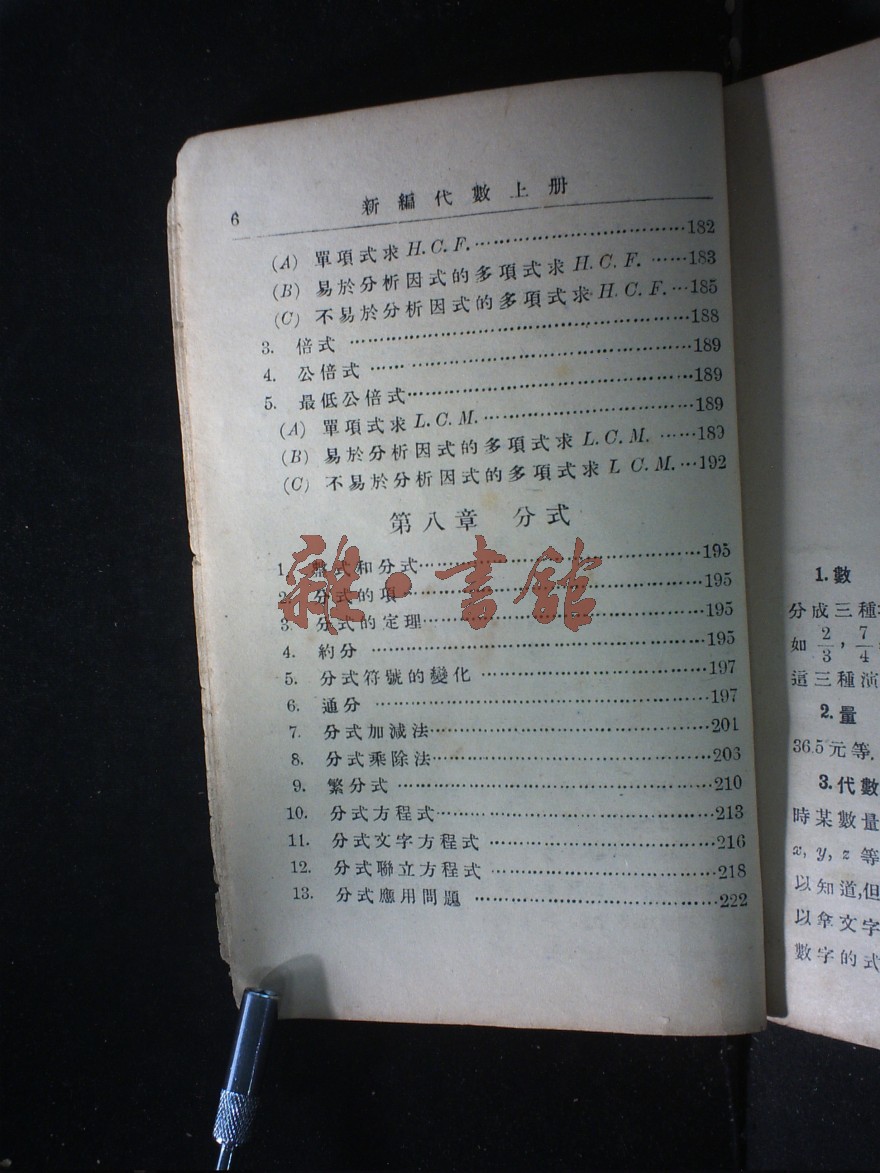 6 新編代數上册
(A) 單項式求 H. C. F.……………………………182
(B) 易於分析因式的多項式求 H. C. F. ……183
(C) 不易於分析因式的多項式求 H. C. F.…185
3. 倍式 ………………………………………………188
4. 公倍式 ……………………………………………189
5. 最低公倍式………………………………………189
(A) 單項式求 L. C. M.……………………………189
(B) 易於分析因式的多項式求 L. C. M. ……189
(C) 不易於分析因式的多項式求 L C. M.…192
第八章 分式
1. 式和分式…………………………………………195
2. 分式的項…………………………………………195
3. 分式的定理………………………………………195
4. 約分 ………………………………………………195
5. 分式符號的變化 …………………………………197
6. 通分 ………………………………………………197
7. 分式加減法………………………………………201
8. 分式乘除法………………………………………203
9. 繁分式 ……………………………………………210
10. 分式方程式………………………………………213
11. 分式文字方程式 …………………………………216
12. 分式聯立方程式 …………………………………218
13. 分式應用問題 ……………………………………222
雜·書館
1. 數
分成三種
如 2/3, 7/4
這三種演
2. 量
36.5元等.
3. 代數
時某數量
x, y, z 等
以知道,但
以拿文字
數字的式